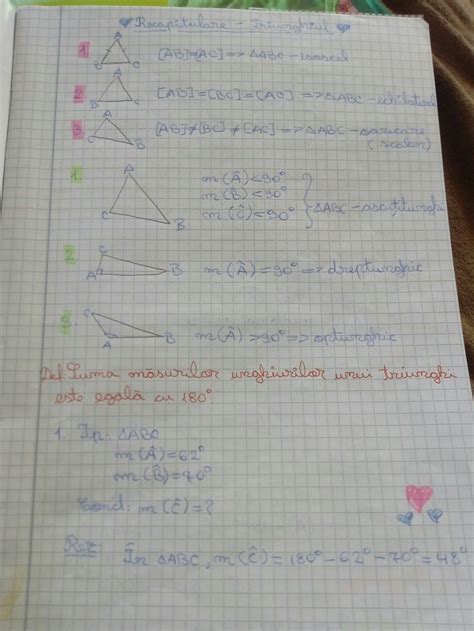 Recapitulare - Triunghiul
A
1. [AB]=[AC]=>ΔABC-isoscel
C B
A
2. [AB]=[BC]=[AC] =>ΔABC-echilateral
B C
A
3. [AB]≠[BC]≠[AC]=>ΔABC-oarecare
C B (scalen)
1. A m(Â)<90°
m(B̂)<90°
m(Ĉ)<90° } ΔABC-ascuțitunghic
C B
2. C
A B m(Â)=90°=>dreptunghic
3. C
A B m(Â)>90°=>optunghic
Def Suma măsurilor unghiurilor unui triunghi
este egală cu 180°.
1. Ip: ΔABC
m(Â)=62°
m(B̂)=70°
Concl: m(Ĉ)=?
Rez:
În ΔABC, m(Ĉ)=180°-62°-70°=48°